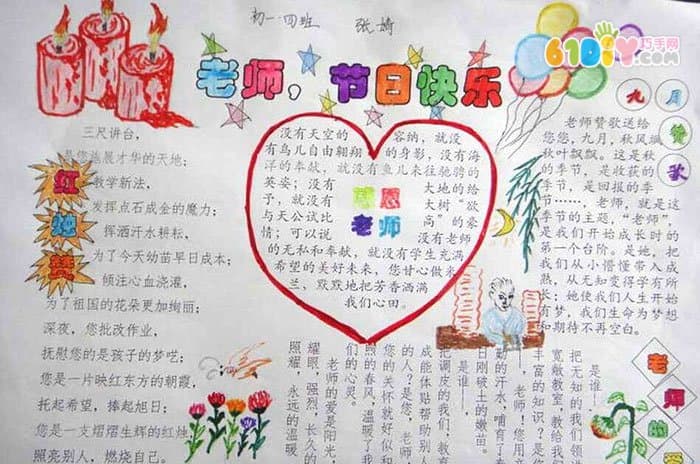 初一四班 张婧
61DIY巧手网
.com
老师，节日快乐
九月赞歌
红烛赞
三尺讲台，
是您施展才华的天地；
教学新法，
发挥点石成金的魔力；
挥洒汗水耕耘，
为了今天幼苗早日成本；
倾注心血浇灌，
为了祖国的花朵更加绚丽；
深夜，您批改作业，
抚慰您的是孩子的梦呓；
您是一片映红东方的朝霞，
托起希望，捧起旭日；
您是一支熠熠生辉的红烛，
照亮别人，燃烧自己。
没有天空的 容纳，就没
有鸟儿自由翱翔 的身影，没有海
洋的奉献，就没有鱼儿来往驰骋的
英姿；没有 大地的给
予，就没有 大树“欲
与天公试比 高”的豪
情；可以说 没有老师
的无私和奉献，就没有学生充满
希望的美好未来，您甘心做米
兰，默默地把芳香洒满
我们心田。
感恩
老师
老师赞歌送给
您，九月，秋风飒
秋叶飘飘。这是秋
的季节，是收获的
季节，是回报的季
节……，老师，就是这
季节的主题，“老师”，
是我们开始成长时的
第一个台阶。是她，把
我们从小懵懂带入成
熟，从无知变得学有所
长；她使我们人生开始
有梦，我们生命为梦想
和期待不再空白。
是谁——
把无知的我们领
宽敞教室，教给我
丰富的知识？是您
——老师！您用
勤的汗水，哺育了
日刚破土的嫩苗。
是谁——
把调皮的我们，教育
成能体贴帮助别人
的人？是您，老师
您的关怀就好似和
煦的春风，温暖了我
们的心灵。
老师的爱是阳光，
耀眼，强烈，长久的
照耀，永远的温暖
老师的爱